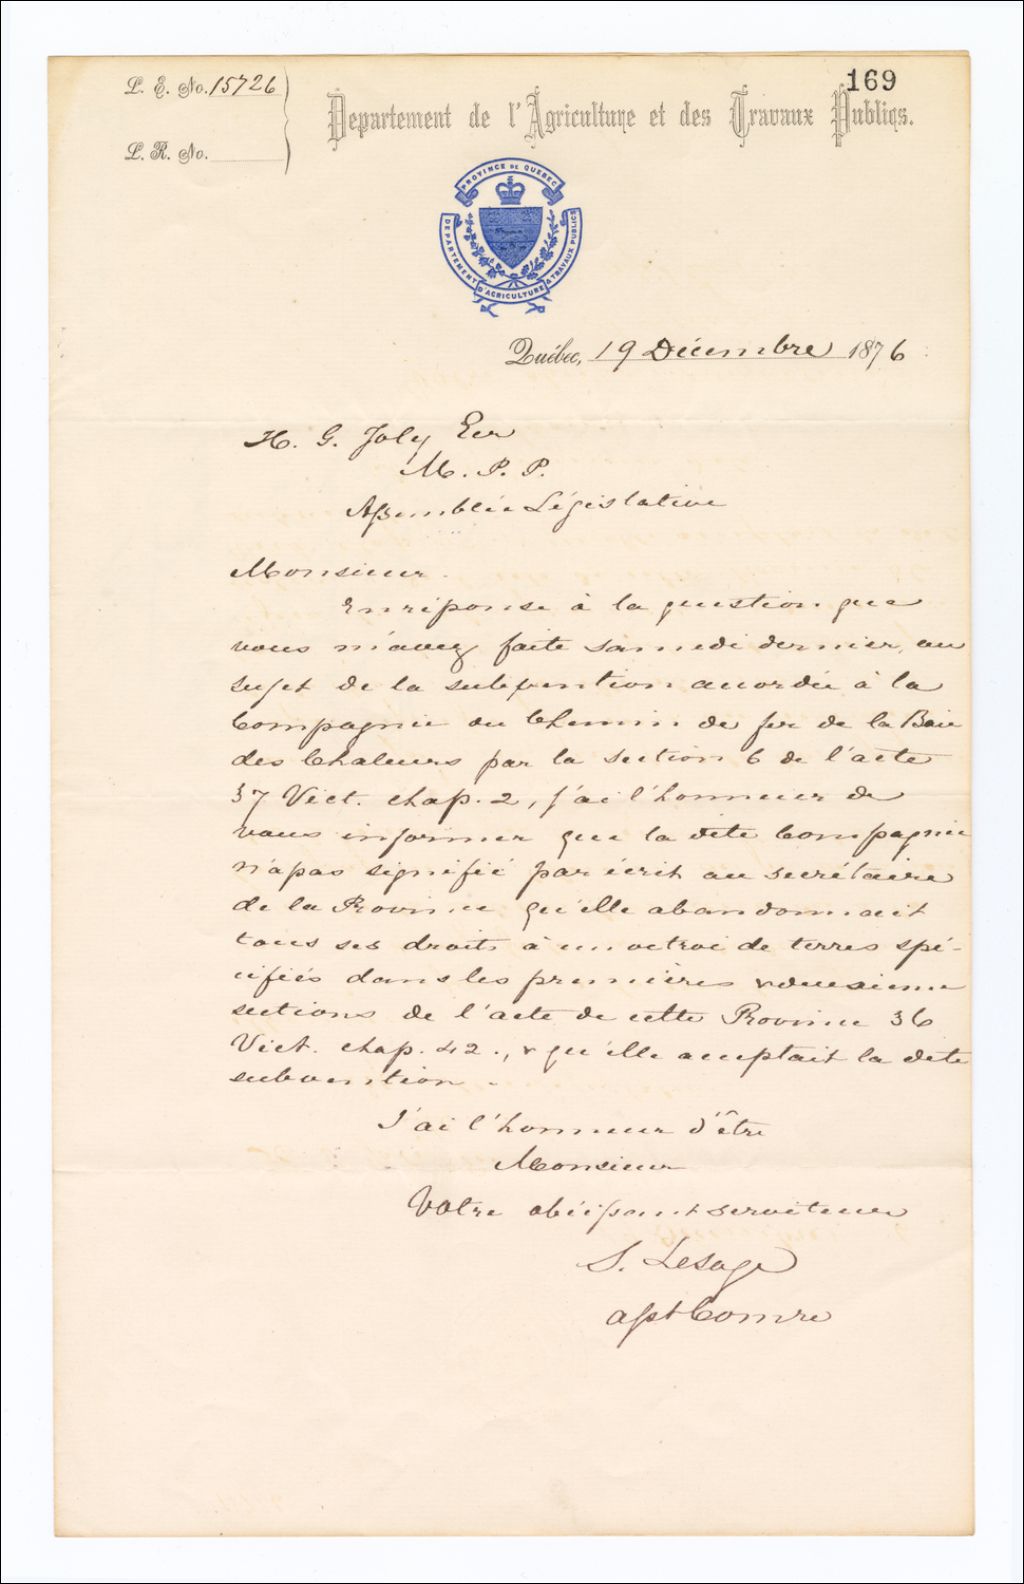 169
L. E. No. 15726
L. R. No.
Departement de l'Agriculture et des Travaux Publics.
PROVINCE DE QUEBEC
DEPARTEMENT D'AGRICULTURE & TRAVAUX PUBLICS
Québec, 19 Décembre 1876
H. G. Joly Ecr
M. P. P.
Assemblée Législative
Monsieur.
En réponse à la question que
vous m'avez faite samedi dernier, au
sujet de la subvention accordée à la
Compagnie du Chemin de fer de la Baie
des Chaleurs par la section 6 de l'acte
37 Vict. chap. 2, j'ai l'honneur de
vous informer que la dite Compagnie
n'a pas signifié par écrit au secrétaire
de la Province qu'elle abandonnait
tous ses droits à un octroi de terres spé-
cifiés dans les premières & deuxième
sections de l'acte de cette Province 36
Vict. chap. 42., & qu'elle acceptait la dite
subvention.
J'ai l'honneur d'être
Monsieur
Votre obéissant serviteur
S. Lesage
asst Comre